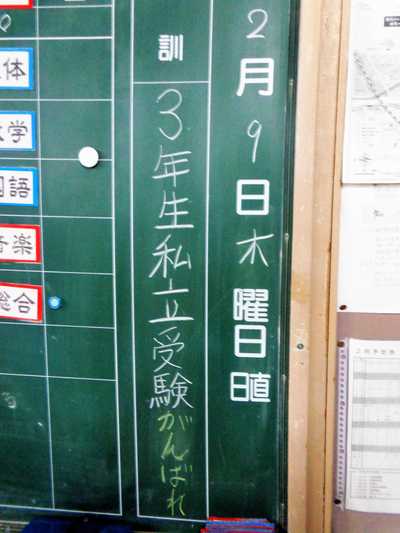 2月9日木曜日
日直
訓
3年生私立受験がんばれ
体
国語
音楽
総合